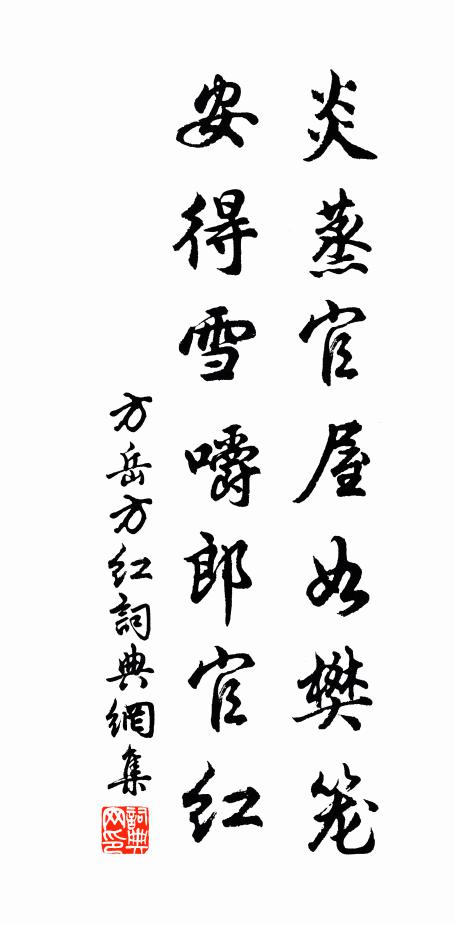 炎蒸官屋如樊笼
安得雪嚼郎官红
方岳方红詞典網集
詞典网印